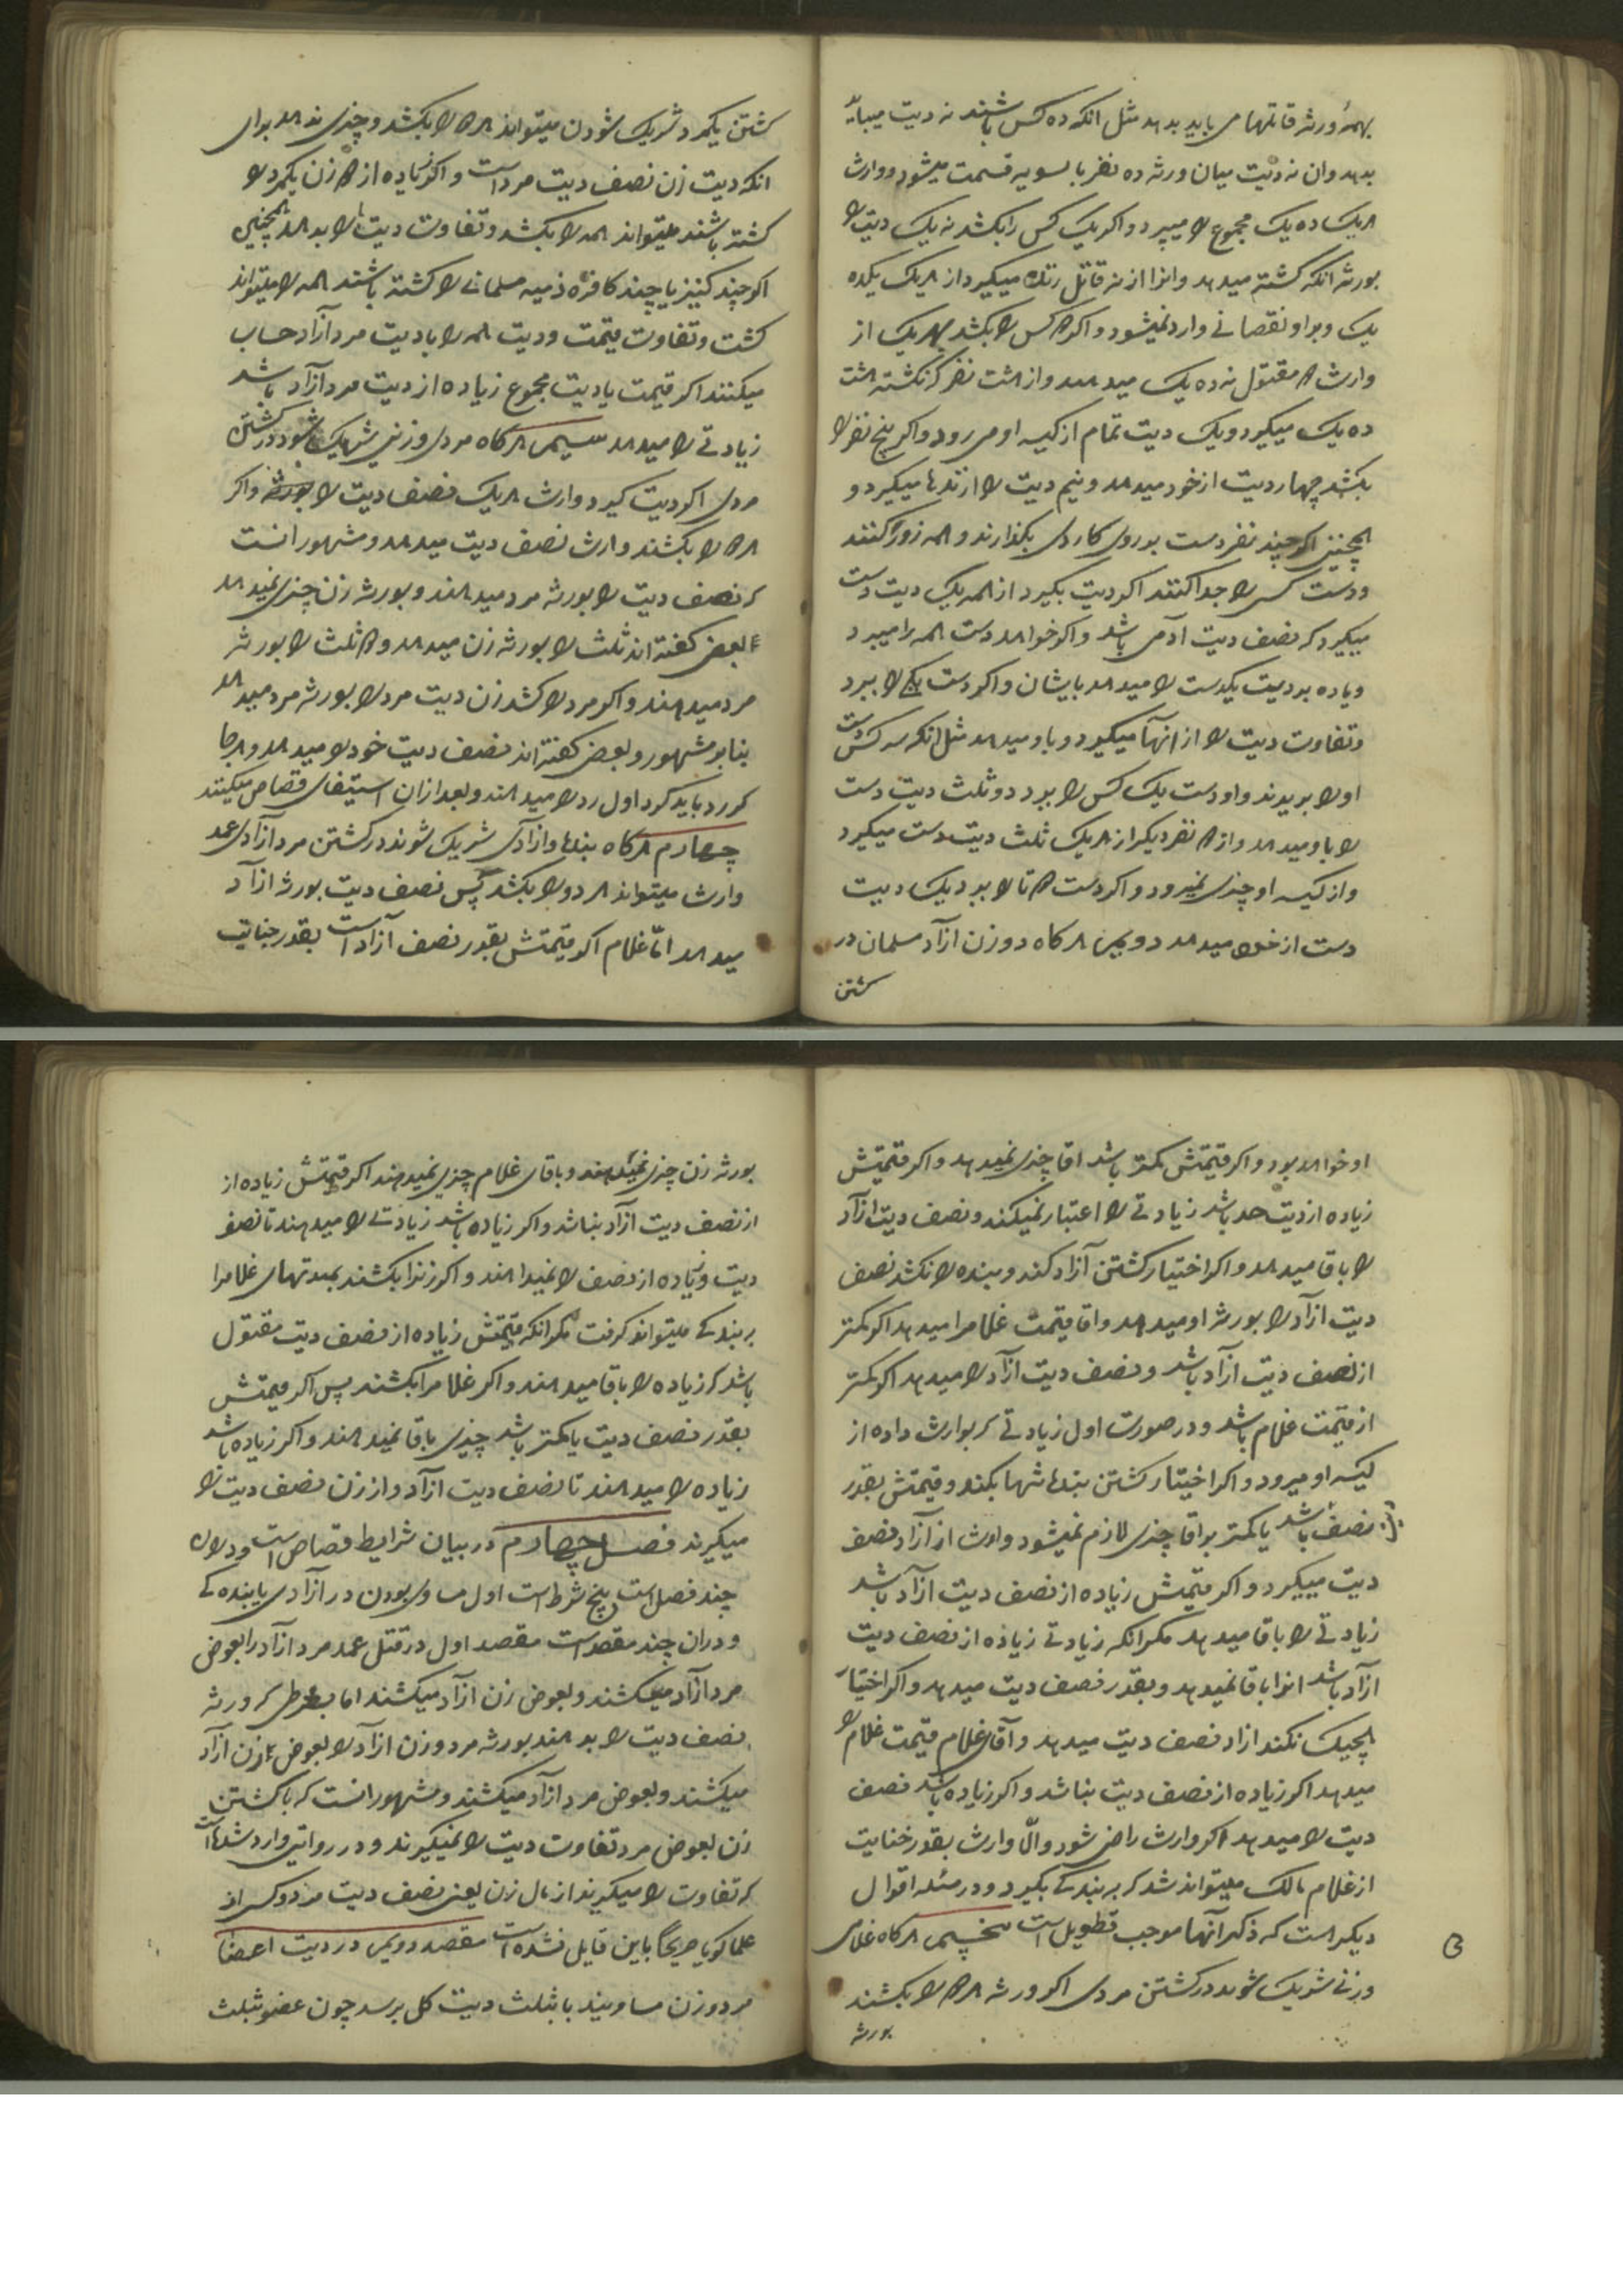 بهمهٔ ورثه قاتلها می باید بدهد مثل انکه ده کس باشند نه دیت میباید
بدهد وان نه دیت میان ورثه ده نفر بالسویه قسمت میشود و وارث
هریک ده یک مجموع را میبرد و اکر یک کس را بکشد نه یک دیت را
بورثه انکه کشته میدهد وانرا از نه قاتل زنده میکیرد از هریک یکده
یک وبر او نقصانی وارد نمیشود و اکر دو کس را بکشد بهر یک از
وارث دو مقتول نه ده یک میدهد واز هشت نفر که نکشته هشت
ده یک میکیرد ویک دیت تمام از کیسه او می رود و اکر پنج نفر را
بکشد چهار دیت از خود میدهد و نیم دیت را از زندها میکیرد و
همچنین اکر چند نفر دست بر روی کاردی بکذارند و همه زور کنند
ودست کسی را جدا کنند اکر دیت بکیرد از همه یک دیت دست
میکیرد که نصف دیت آدمی باشد و اکر خواهد دست همه را میبرد
وزیاده بر دیت یکدست را میدهد بایشان و اکر دست یکی را ببرد
وتفاوت دیت را از انها میکیرد و باو میدهد مثل انکه سه کس دست
او را بریدند و او دست یک کس را ببرد دو ثلث دیت دست
را باو میدهد و از دو نفر دیکر از هریک ثلث دیت دست میکیرد
و از کیسه او چیزی نمیرود و اکر دست دو تا را ببرد یک دیت
دست از خود میدهد دویم هرکاه دو زن ازآد مسلمان در
کشتن
کشتن یکمرد شریک شوند میتوانند هر دو را بکشد و چیزی ندهد برای
انکه دیت زن نصف دیت مرد است و اکر زیاده از دو زن یکمرد را
کشته باشند میتواند همه را بکشد و تفاوت دیت را بدهد همچنین
اکر چند کنیز یا چند کافره ذمیه مسلمانی را کشته باشند همه را میتواند
کشت وتفاوت قیمت ودیت همه را با دیت مرد آزاد حساب
میکنند اکر قیمت یا دیت مجموع زیاده از دیت مرد آزاد باشد
زیادتی را میدهد سیم هرکاه مردی وزنی شریک شوند در کشتن
مردی اکر دیت کیرد وارث هریک نصف دیت را و اکر
هر دو را بکشند وارث نصف دیت میدهد ومشهور انست
که نصف دیت را بورثه مرد میدهند و بورثه زن چیزی نمیدهد
بعضی کفته اند ثلث را بورثه زن میدهد و دو ثلث را بورثه
مرد میدهند و اکر مرد را کشد زن دیت مرد را بورثه مرد میدهد
بنابر مشهور و بعضی کفته اند نصف دیت خود را میدهد و هرجا
که رد باید کرد اول رد را میدهند و بعد از ان استیفای قصاص میکنند
چهارم هرکاه بنده وازآدی شریک شوند در کشتن مرد آزادی عمد
وارث میتواند هر دو را بکشد پس نصف دیت بورثه ازآد
میدهد امّا غلام اکر قیمتش بقدر نصف آزاد است بقدر جنایت
او خواهد بود و اکر قیمتش کمتر باشد اقا چیزی نمیدهد و اکر قیمتش
زیاده از دیت حد باشد زیادتی را اعتبار نمیکند و نصف دیت ازآد
را باقا میدهد و اکر اختیار کشتن آزاد کند و بنده را نکشد نصف
دیت ازآد را بورثه او میدهد و اقا قیمت غلامرا میدهد اکر کمتر
از نصف دیت ازآد باشد و نصف دیت ازآد را میدهد اکر کمتر
از قیمت غلام باشد و در صورت اول زیادتی که بوارث داده از
کیسه او میرود و اکر اختیار کشتن بنده تنها بکند و قیمتش بقدر
نصف باشد یا کمتر بر اقا چیزی لازم نمیشود وارث از آزاد نصف
دیت میکیرد و اکر قیمتش زیاده از نصف دیت ازآد باشد
زیادتی را باقا میدهد مکر انکه زیادتی زیاده از نصف دیت
ازآد باشد انرا باقا نمیدهد و بقدر نصف دیت میدهد و اکر اختیار
هیچیک نکند ازاد نصف دیت میدهد و آقای غلام قیمت غلام را
میدهد اکر زیاده از نصف دیت نباشد و اکر زیاده باشد نصف
دیت را میدهد اکر وارث راضی شود والّا وارث بقدر جنایت
از غلام مالک میتواند شد که به بندکی بکیرد و در مسئله اقوال
دیکر است که ذکر آنها موجب تطویل است پنجم هرکاه غلامی
وزنی شریک شوند در کشتن مردی اکر ورثه هر دو را بکشند
بورثه
بورثه زن چیزی نمیدهند و باقای غلام چیزی نمیدهند اکر قیمتش زیاده از
از نصف دیت آزاد نباشد و اکر زیاده باشد زیادتی را میدهند تا نصف
دیت و زیاده از نصف را نمیدهند و اکر زنرا بکشند بمدتهای غلامرا
به بندکی میتواند کرفت مکر انکه قیمتش زیاده از نصف دیت مقتول
باشد که زیاده را باقا میدهند و اکر غلامرا بکشند پس اکر قیمتش
بقدر نصف دیت یا کمتر باشد چیزی باقا نمیدهند و اکر زیاده باشد
زیاده را میدهند تا نصف دیت ازآد و از زن نصف دیت را
میکیرند فصل چهارم در بیان شرایط قصاص است و در ان
چند فصل است پنج شرط است اول مساوی بودن در آزادی یا بنده کی
ودران چند مقصد است مقصد اول در قتل عمد مرد ازاد را بعوض
مرد آزاد میکشند و بعوض زن ازآد میکشند اما بشرطی که ورثه
نصف دیت را بدهند بورثه مرد و زن ازآد را بعوض زن ازآد
میکشند و بعوض مرد ازآد میکشند ومشهور انست که با کشتن
زن بعوض مرد تفاوت دیت را نمیکیرند و در روایتی وارد شده است
که تفاوت را میکیرند از مال زن یعنی نصف دیت مرد و کسی از
علما کویا صریحًا باین قایل نشده است مقصد دویم در دیت اعضا
مرد و زن مساویند تا بثلث دیت کل برسد چون عضو بثلث